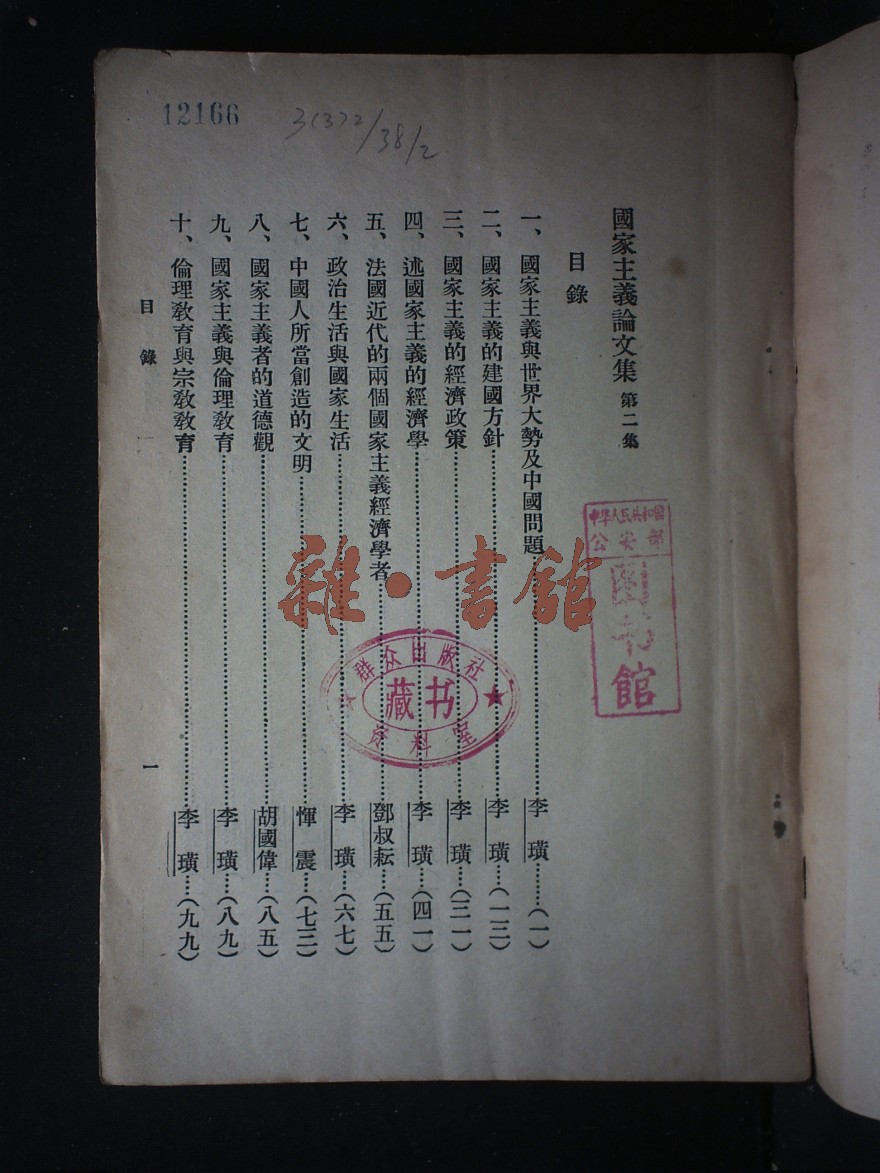 12166
3(3)2/38/2
國家主義論文集 第二集
目錄
一、國家主義與世界大勢及中國問題……李璜……(一)
二、國家主義的建國方針……李璜……(一三)
三、國家主義的經濟政策……李璜……(三一)
四、述國家主義的經濟學……李璜……(四一)
五、法國近代的兩個國家主義經濟學者……鄧叔耘……(五五)
六、政治生活與國家生活……李璜……(六七)
七、中國人所當創造的文明……惲震……(七三)
八、國家主義者的道德觀……胡國偉……(八五)
九、國家主義與倫理教育……李璜……(八九)
十、倫理教育與宗教教育……李璜……(九九)
目錄
一
中华人民共和国
公安部
图书馆
群众出版社
藏书
资料室
雜·書館